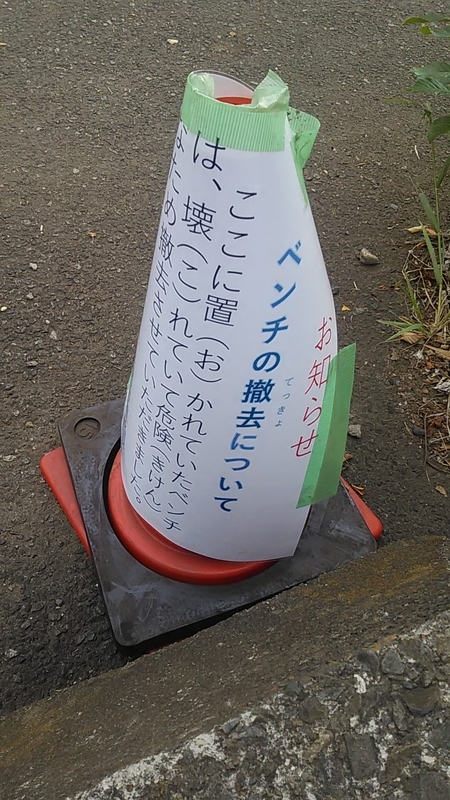 お知らせ
ベンチの撤去について
てっきょ
ここに置（お）かれていたベンチ
は、壊（こ）れていて危険（きけん）
なため撤去させていただきました。